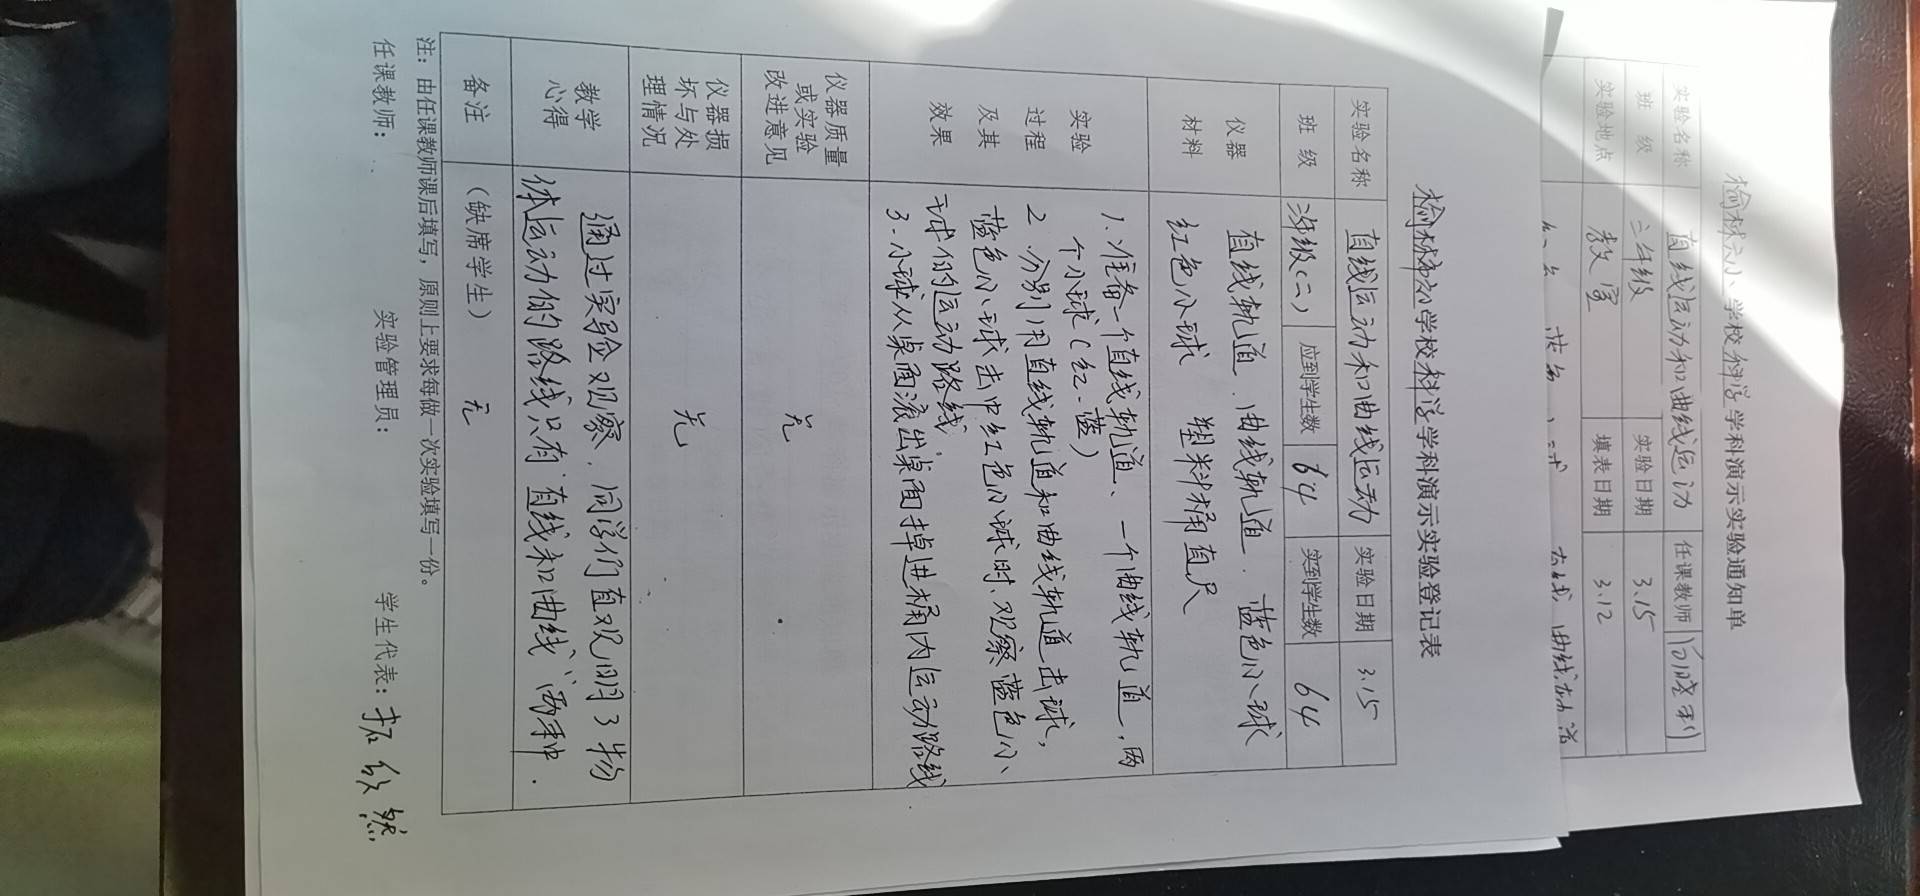 榆林市六小学校科学学科演示实验登记表
实验名称 直线运动和曲线运动 实验日期 3.15
班 级 三年级(二) 应到学生数 64 实到学生数 64
仪器
材料
直线轨道 曲线轨道 蓝色小球
红色小球 塑料桶 直尺
实验
过程
及其
效果
1、准备一个直线轨道、一个曲线轨道，两
个小球(红、蓝)
2 分别用直线轨道和曲线轨道击球，
蓝色小球击中红色小球时、观察蓝色小
球的运动路线。
3. 小球从桌面滚出桌面掉进桶内运动路线
仪器质量
或实验
改进意见
无
仪器损
坏与处
理情况
无
教学
心得
通过实验观察，同学们直观明了物
体运动的路线只有“直线和曲线”两种.
备注 （缺席学生） 无
注：由任课教师课后填写，原则上要求每做一次实验填写一份。
任课教师： 实验管理员： 学生代表：拓欣然
榆林六小学校科学学科演示实验通知单
实验名称 直线运动和曲线运动 任课教师
班 级 三年级 实验日期 3.15
实验地点 教室 填表日期 3.12